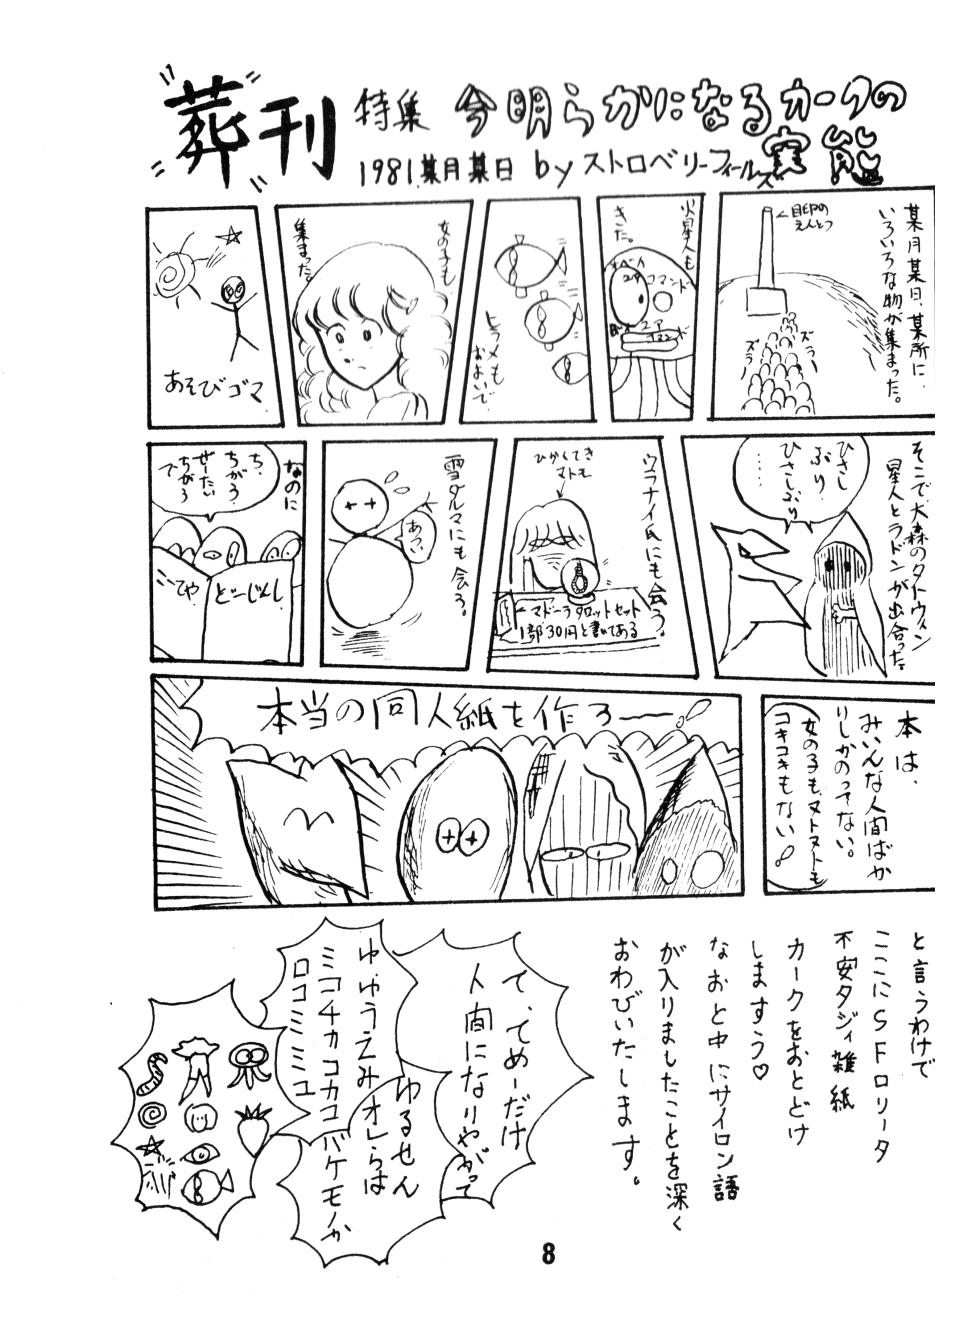 葬刊
特集 今明らかになるカークの
實態
1981.某月某日 by ストロベリーフィールズ
某月某日、某所に
いろいろな物が集まった。
←目印の
えんとつ
ズラー
ズラー
火星人も
きた。
コマンド
ヒラメも
およいで
女の子も
集まった。
あそびゴマ
そこで、大森のタトウィン
星人とラドンが出合った。
ひさし
ぶり
ひさしぶり
……
ウラナイ氏にも会う。
ひかくてき
マトモ
マドーラタロットセット
1部30円と書いてある
雪ダルマにも会う。
あつい
なのに
ち、
ちがう
ぜーたい
ちがう
で
どーじんし
本は、
みいんな人間ばか
りしかのってない。
女の子も、ヌトヌトも
コキコキもない!
本当の同人紙を作ろーー!
と言うわけで
ここにSFロリータ
不安タジィ雑紙
カークをおとどけ
しますう♡
なおと中にサイロン語
が入りましたことを深く
おわびいたします。
て、てめーだけ
人間になりやがって
ゆるせん
オレらは
バケモノか
ゆゆうえみ
ミコチカコカコ
ロコミミユ
8